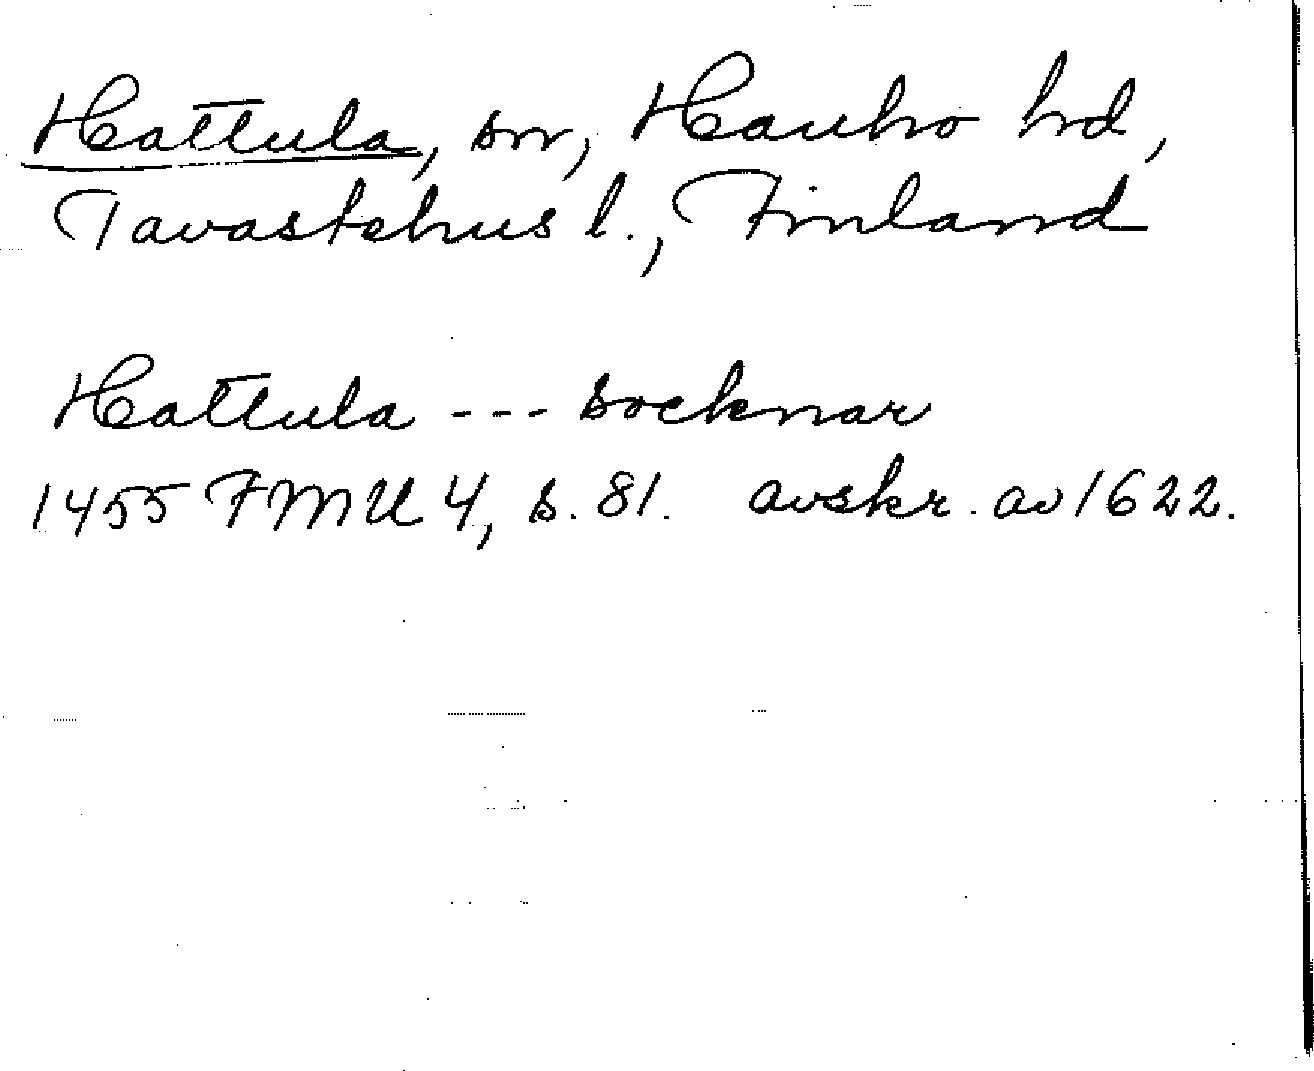 Hattula, sn, Hauho hd,
Tavastehus l., Finland
Hattula --- socknar
1455 FMU 4, s. 81. avskr. av 1622.